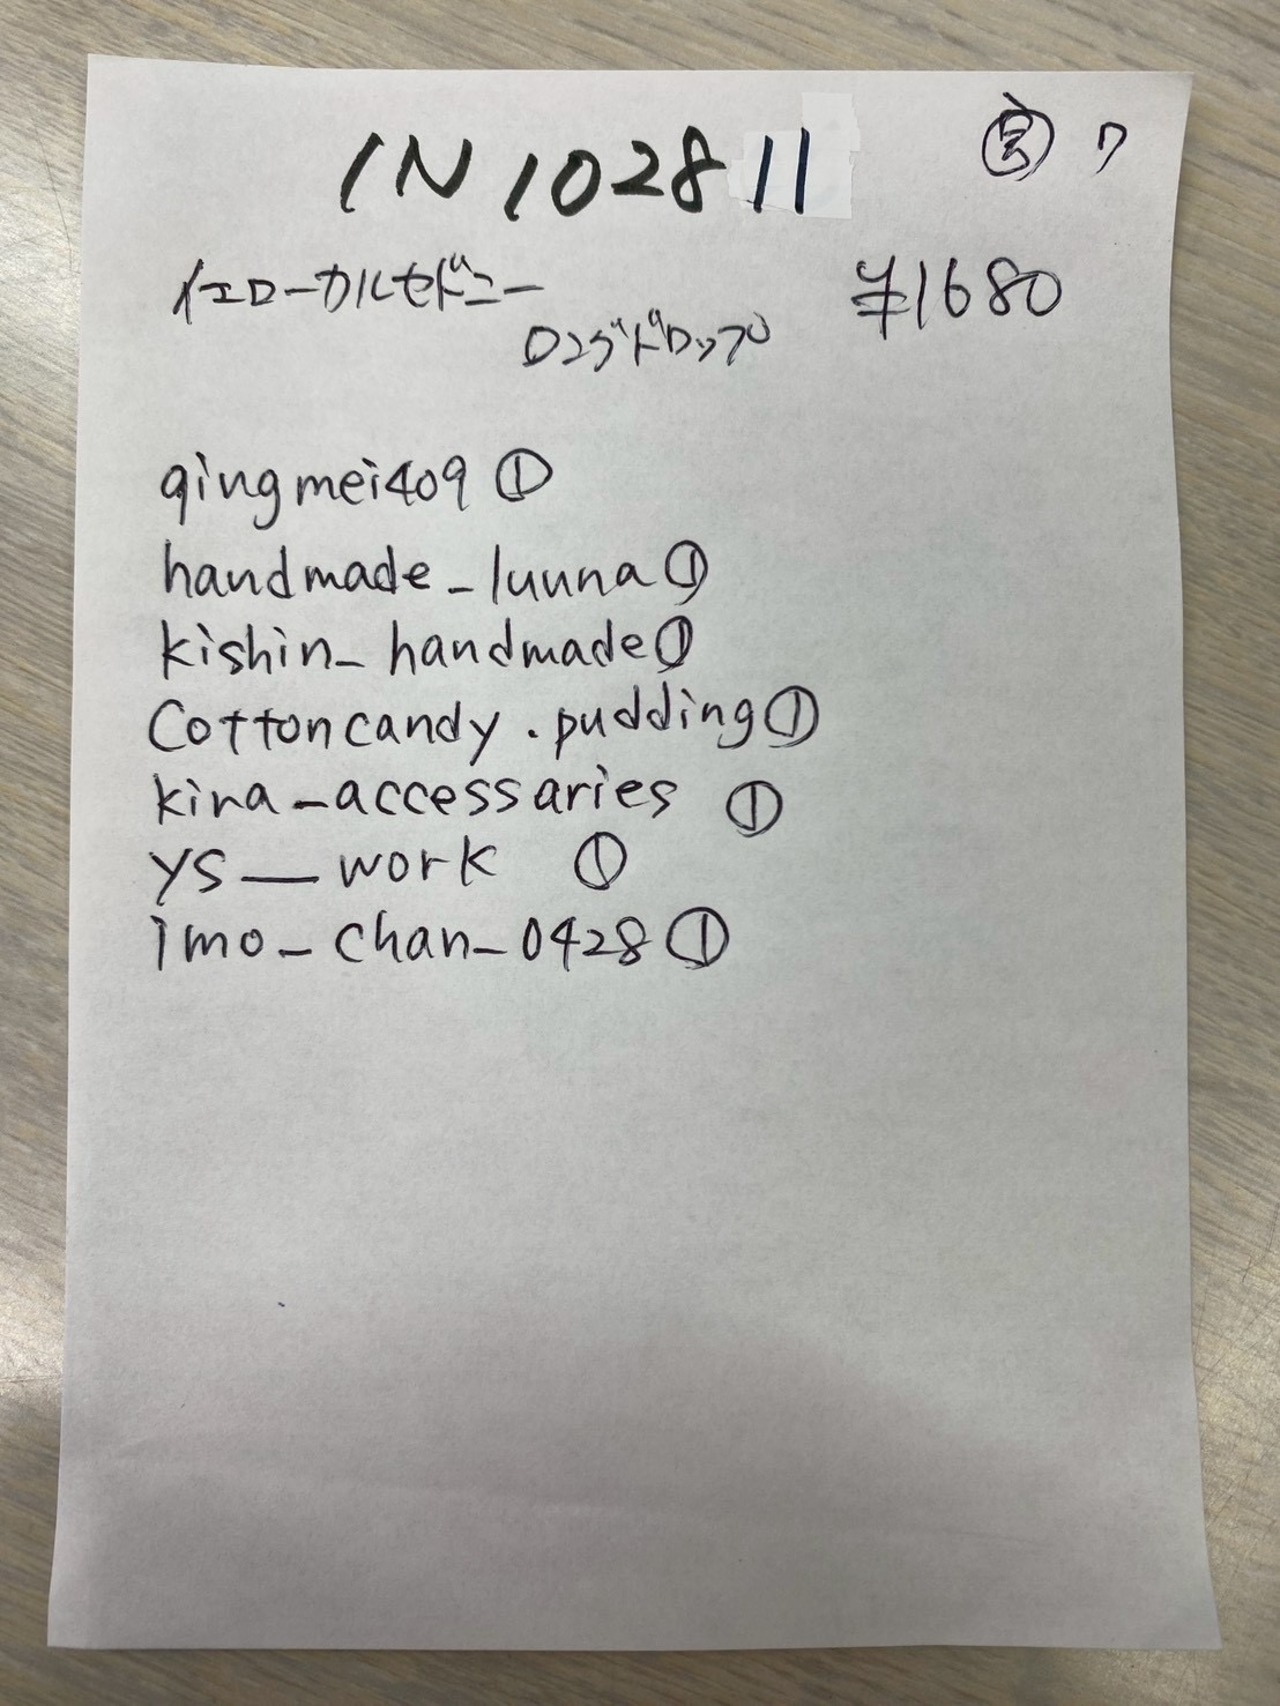 IN102811
7
イエローカルセドニー
ロングドロップ
¥1680
qingmei409 ①
handmade_luuna ①
kishin_handmade ①
Cottoncandy.pudding ①
kira_accessaries ①
ys__work ①
imo_chan_0428 ①